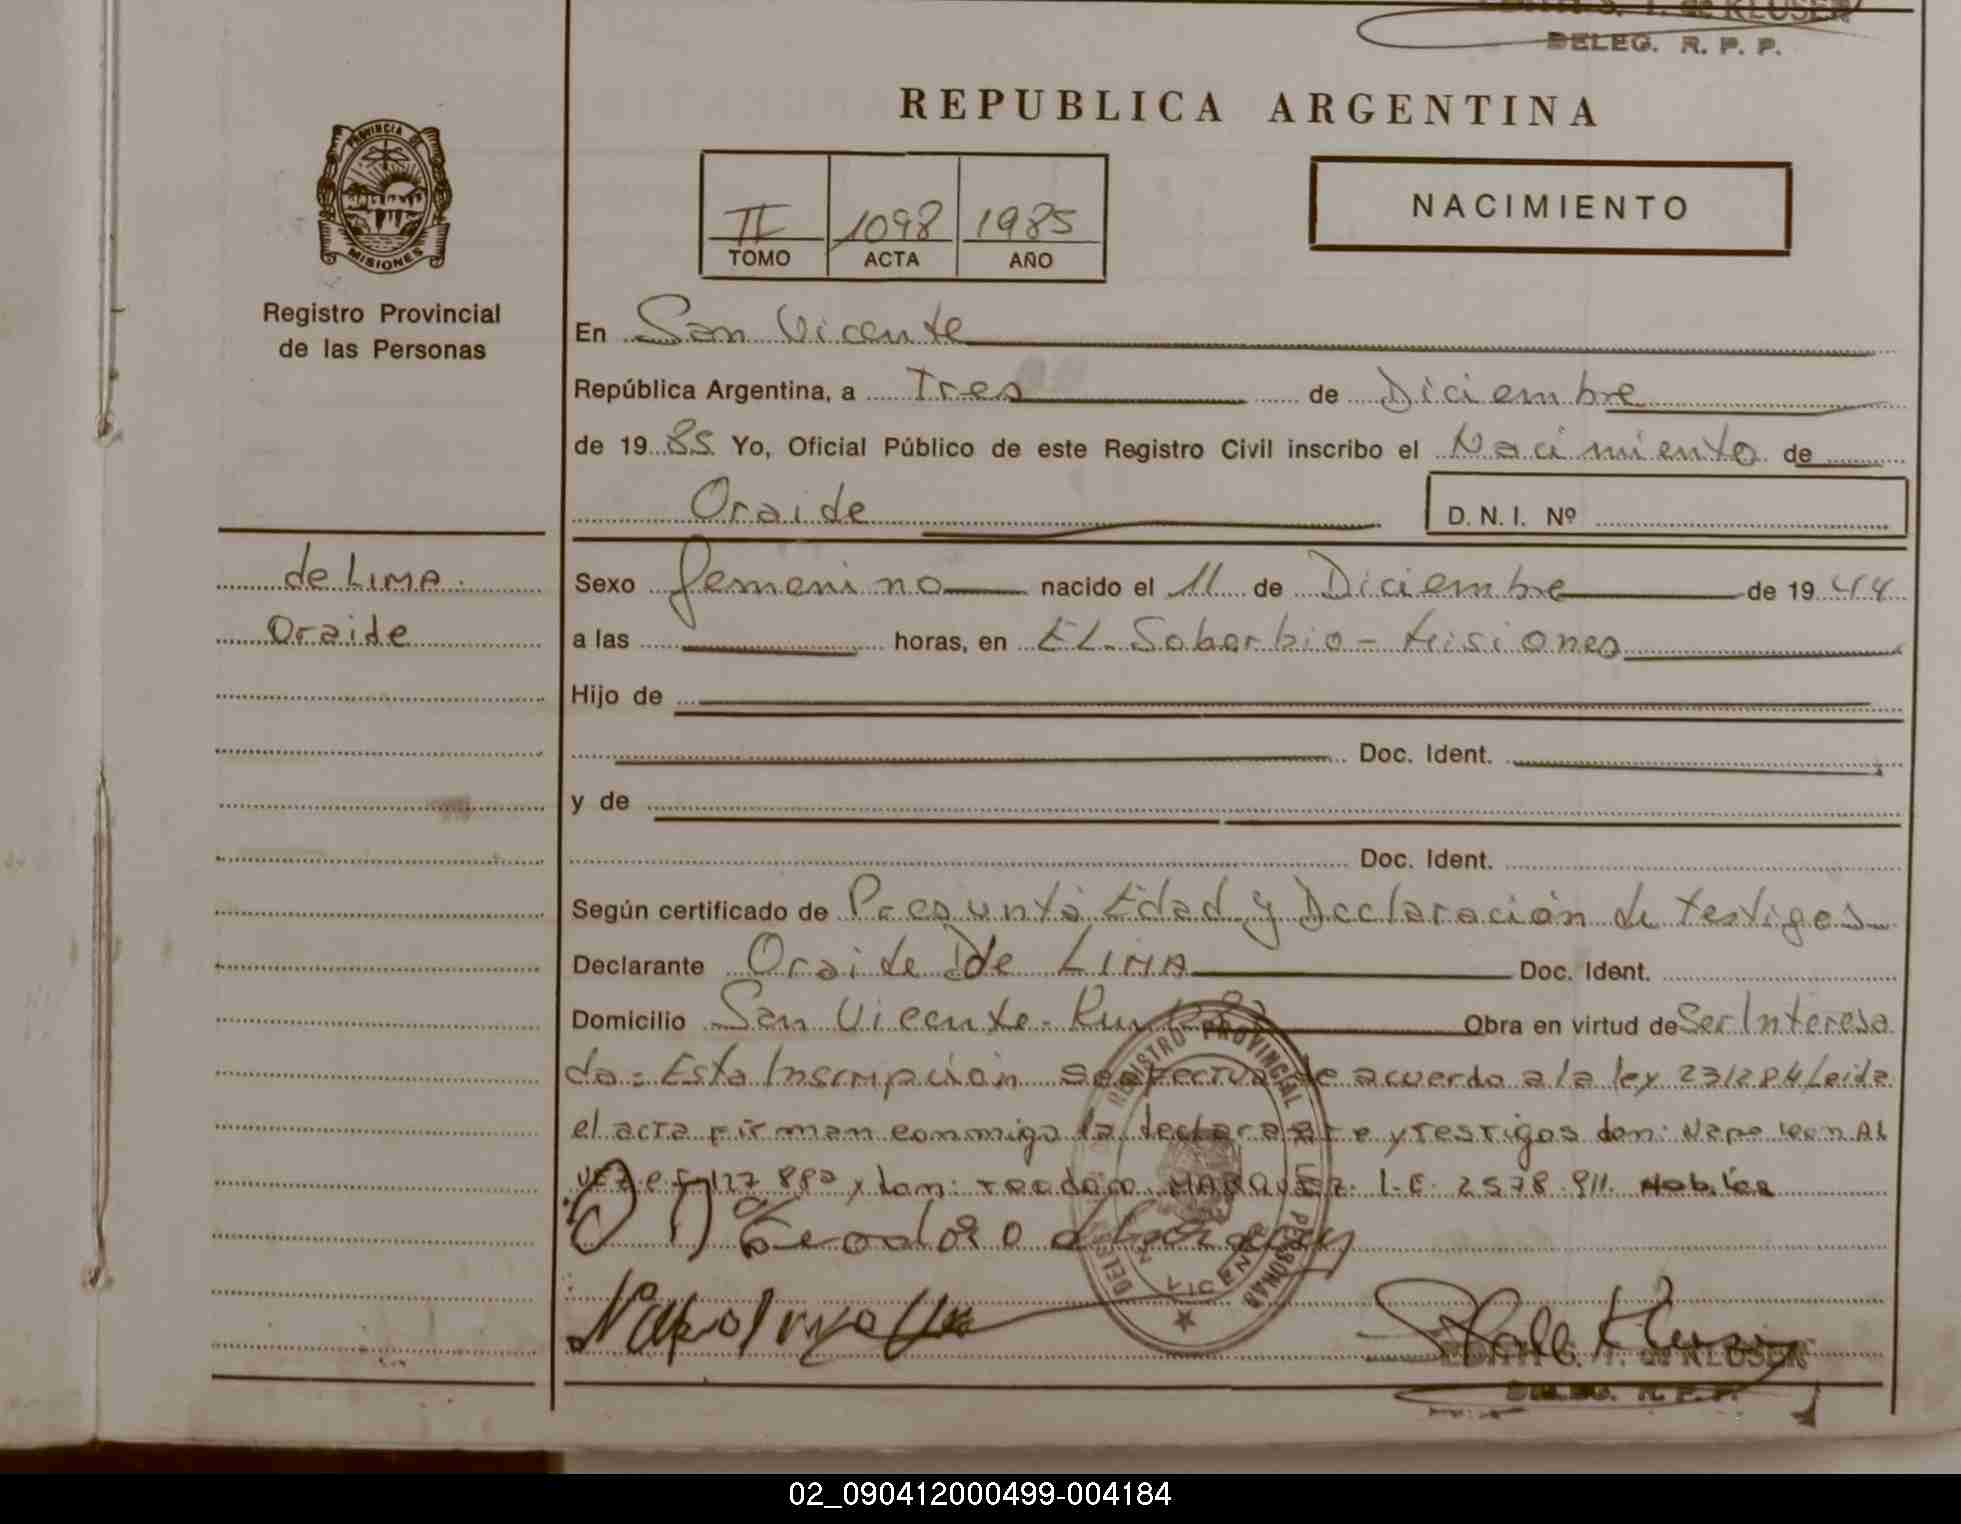 DELEG. R. P. P.
REPUBLICA ARGENTINA
PROVINCIA DE
MISIONES
Registro Provincial
de las Personas
II 1098 1985
TOMO ACTA AÑO
NACIMIENTO
En San Vicente
República Argentina, a Tres de Diciembre
de 19 85 Yo, Oficial Público de este Registro Civil inscribo el Nacimiento de
Oraide D. N. I. Nº
de LIMA.
Oraide
Sexo femenino nacido el 11 de Diciembre de 19 44
a las horas, en EL Soberbio - Misiones
Hijo de
Doc. Ident.
y de
Doc. Ident.
Según certificado de Presunta Edad y Declaración de testigos
Declarante Oraide De LIMA Doc. Ident.
Domicilio San Vicente - Obra en virtud de Ser Interesa
da = Esta Inscripción se efectua de acuerdo a la ley 23128 Leida
el acta firman conmigo la declarante y testigos don: Napoleon AL
VEZ y don: Teodoro MARQUEZ. I.E. 2578.911.
REGISTRO PROVINCIAL DE PERSONAS
VICENTE
de KLUSEN
DELEG. R. P. P.
02_090412000499-004184